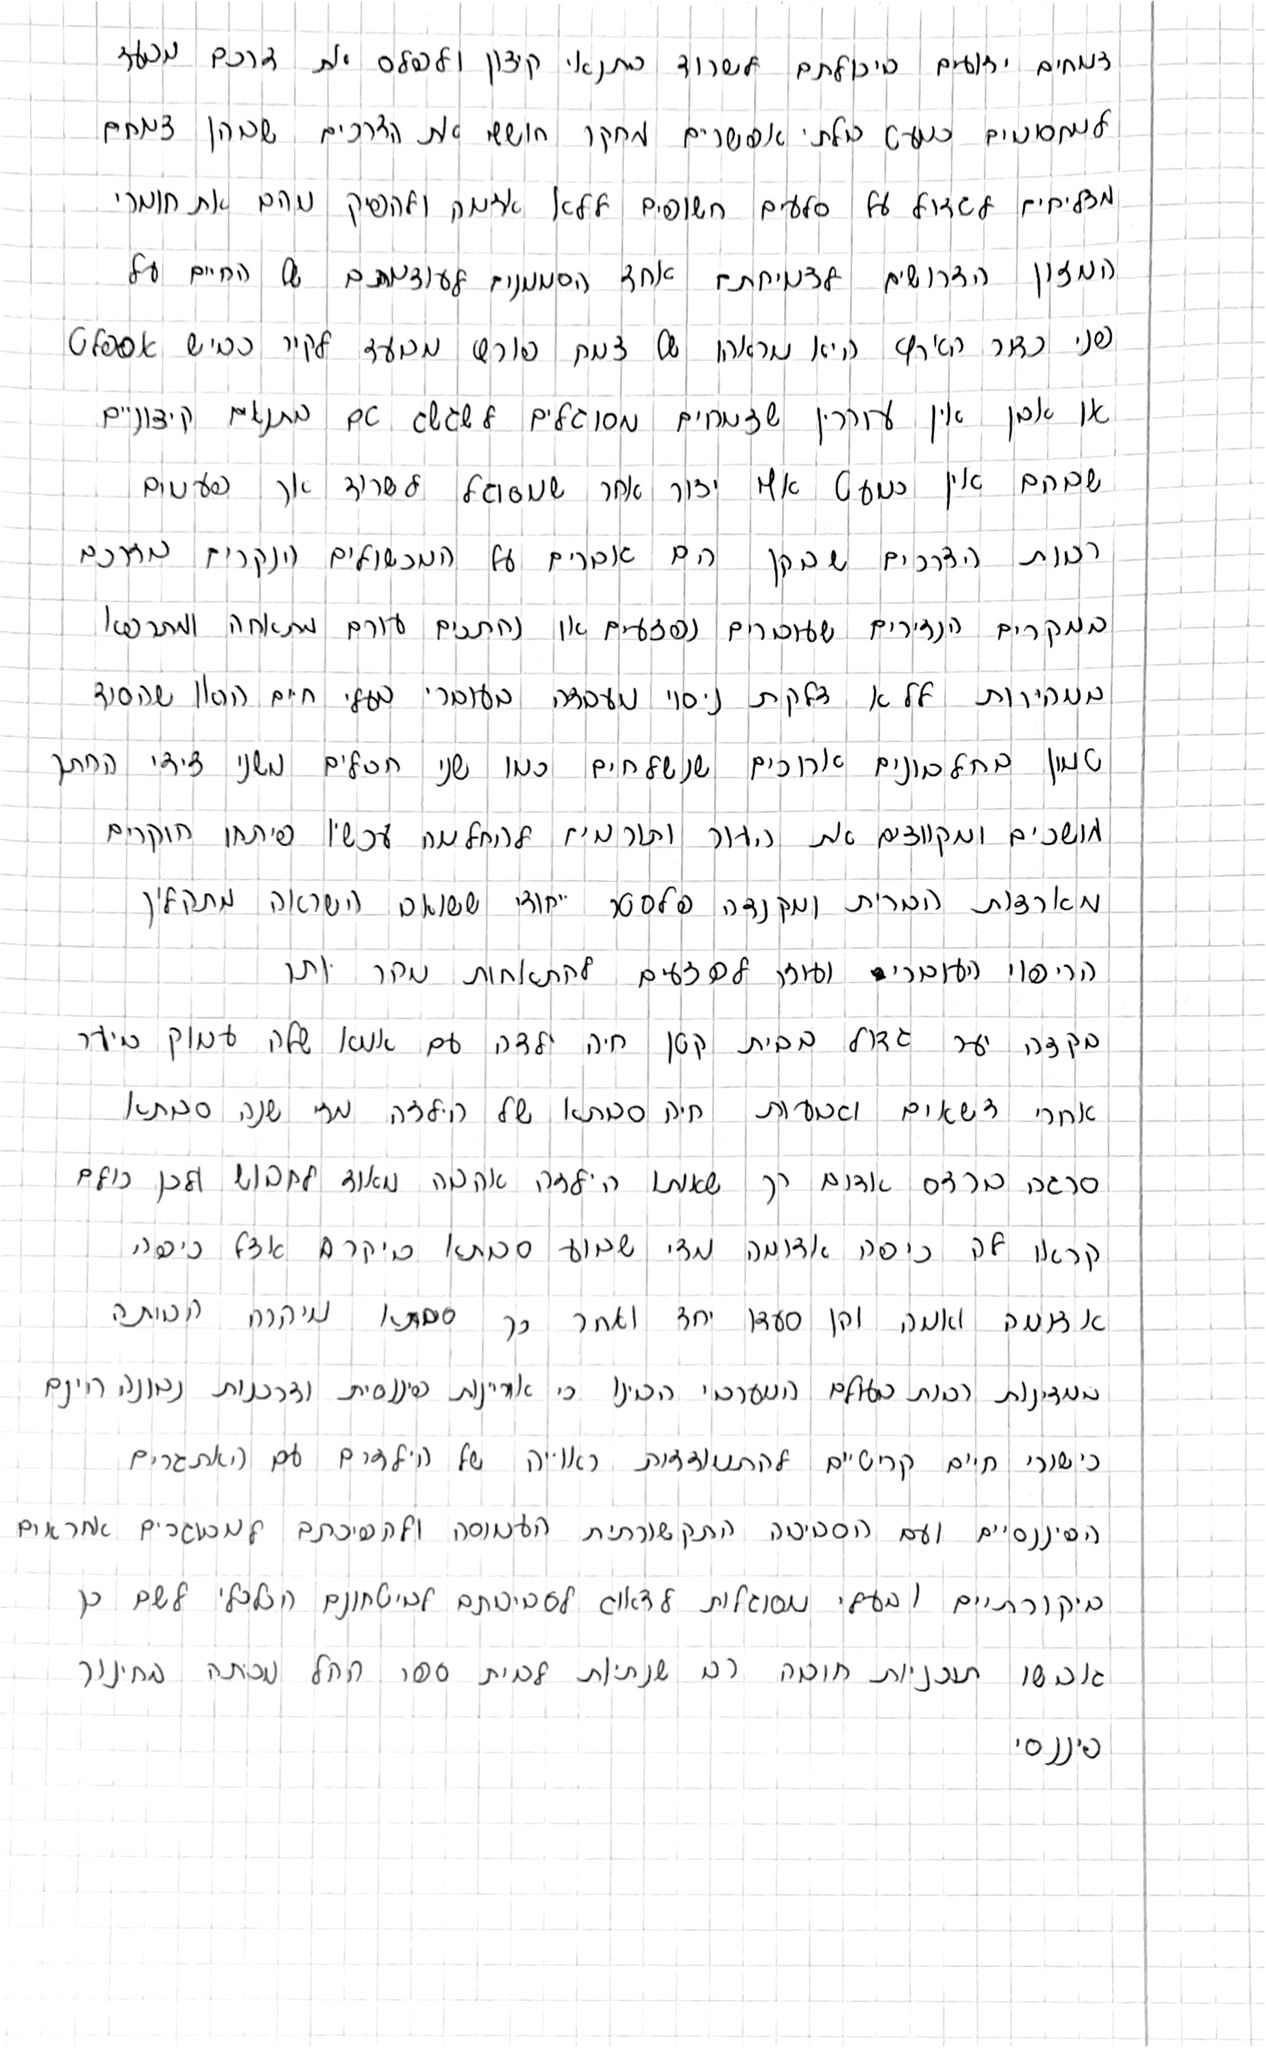 צמחים ידועים ביכולתם לשרוד בתנאי קיצון ולפלס את דרכם מבעד
למחסומים כמעט בלתי אפשריים מחקר חושש את הדרכים שבהן צמחם
מצליחים לגדול על סלעים חשופים ללא אדמה ולהפיק מהם את חומרי
המזון הדרושים לצמיחתם אחד הסממנים לעוצמתם של החיים על
פני כדור הארץ היא מראהו של צמח פורש מבעד לקיר כביש אספלט
או אבן אין עוררין שצמחים מסוגלים לשגשג גם בתנאים קיצוניים
שבהם אין כמעט אף יצור אחר שמסוגל לשרוד אך פעמים
רבות הדרכים שבהן הם אוברים על המכשולים הנקרים בדרכם
במקרים הנדירים שעוברים נפצעים או נחתכים עורם מתאחה ומתרפא
במהירות ללא דלקת ניסוי מעבדה בעוברי בעלי חיים הראו שהסוד
טמון בחלבונים ארוכים שנשלחים כמו שני חבלים משני צידי החתך
מושכים ומקווצים את העור ותורמים להחלמה עכשיו פיתחו חוקרים
מארצות הברית ומקנדה פלסטר ייחודי ששואב השראה מתהליך
הריפוי העוברי ועוזר לפצעים להתאחות מהר יותר
בקצה יער גדול בבית קטן חיה ילדה עם אמא שלה עמוק ביער
אחרי דשאים וגבעות חיה סבתא של הילדה מדי שנה סבתא
סרגה ברדס אדום רך שאותו הילדה אהבה מאוד לחבוש ולכן כולם
קראו לה כיפה אדומה מדי שבוע סבתא ביקרה אצל כיפה
אדומה ואמה והן סעדו יחד ואחר כך סבתא מיהרה הביתה
במדינות רבות בעולם המערבי הבינו כי אוריינות פיננסית וצרכנות נבונה הינם
כישורי חיים קריטיים להתמודדות ראוייה של הילדים עם האתגרים
הפיננסיים ועם הסביבה התקשורתית העמוסה ולהפיכתם למבוגרים אחראים
ביקורתיים ובעלי מסוגלות לדאוג לסביבתם לביטחונם הכלכלי לשם כך
גובשו תוכניות חובה רב שנתיות לבית ספר החל מכיתה בחינוך
פיננסי